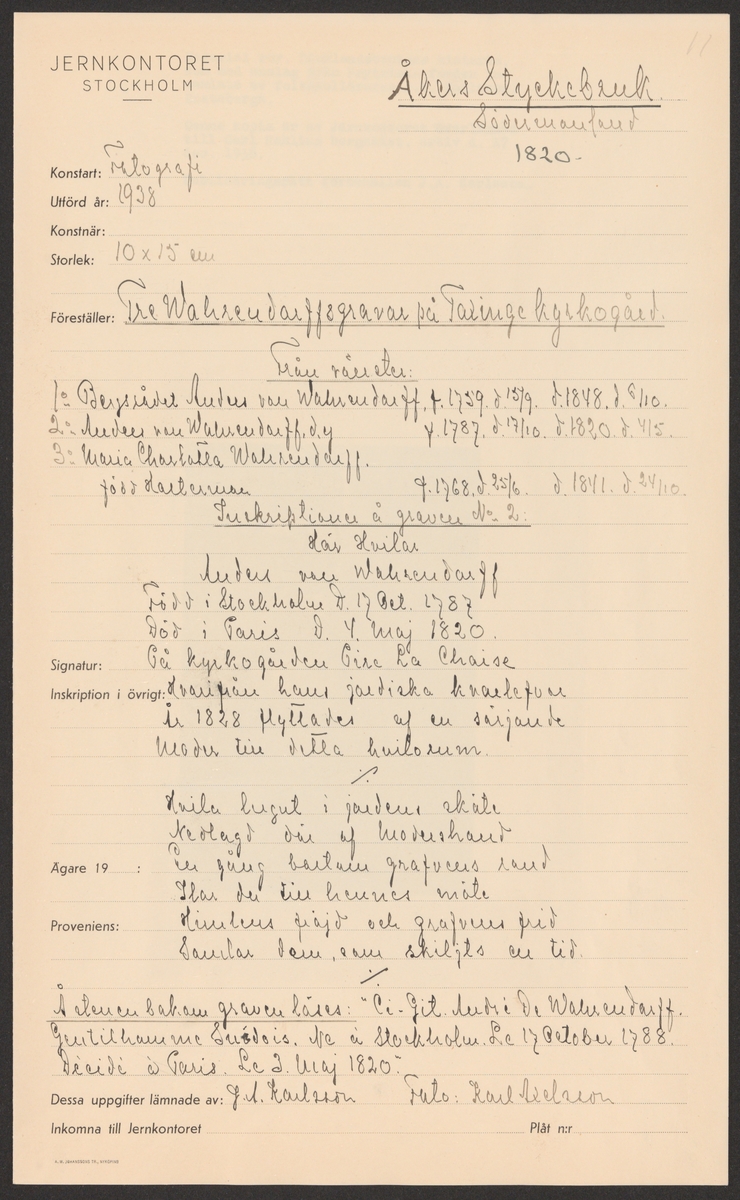 11
JERNKONTORET
STOCKHOLM
Åkers Styckebruk.
Södermanland
1820.
Konstart: Fotografi
Utförd år: 1938
Konstnär:
Storlek: 10 x 15 cm
Föreställer: Tre Wahrendorffsgravar på Taxinge kyrkogård.
Från vänster:
1o Bergsrådet Anders von Wahrendorff, f. 1759. d. 15/9. d. 1848. d. 6/10.
2o Anders von Wahrendorff, d.y f. 1787. d. 17/10. d. 1820. d. 4/5.
3o Maria Charlotta Wahrendorff.
född Hasterman f. 1768. d. 25/6. d. 1841. d. 24/10.
Inskriptionen å graven No 2:
Här Hvilar
Anders von Wahrendorff
Född i Stockholm D. 17 Oct. 1787
Död i Paris D. 4. Maj 1820.
Signatur: På kyrkogården Pire La Chaise
Inskription i övrigt: Hvarifrån hans jordiska kvarlefvor
År 1828 flyttades af en sörjande
Moder till detta hvilorum.
./.
Hvila lugnt i jordens sköte
Nedlagd där af Modershand
Ägare 19 : En gång bortom grafvens rand
Ilar du till hennes möte
Proveniens: Himlens fröjd och grafvens frid
Samlar dem, som skiljts en tid.
./.
Å stenen bakom graven läses: "Ci-Git. André De Wahrendorff.
Gentilhomme Suédois. Ne à Stockholm. Le 17 October 1788.
Décidé à Paris. Le 3. Maj 1820."
Dessa uppgifter lämnade av: J. A. Karlsson Foto: Karl Axelsson
Inkomna till Jernkontoret Plåt n:r